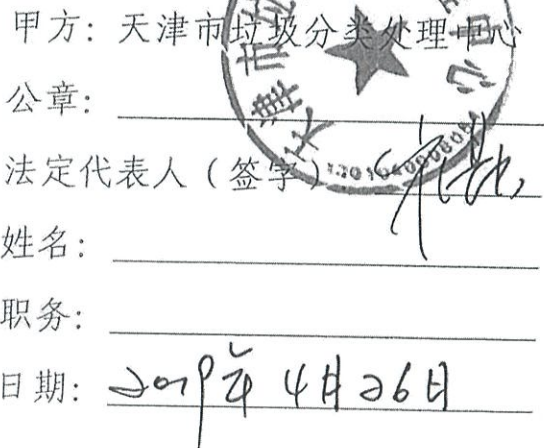 甲方：天津市垃圾分类处理中心
公章：
法定代表人（签字）
姓名：
职务：
日期：2019年4月26日